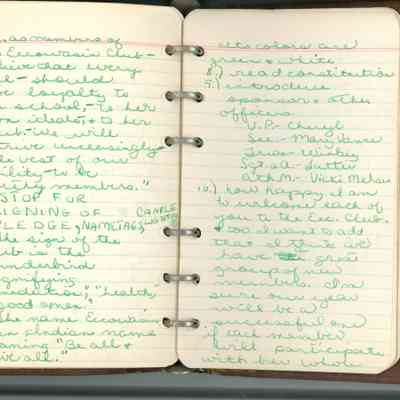 as members of
Eccowasin Club—
that every
should
loyalty to
school,— to her
ideals, & to her
We will
strive unceasingly
best of our
ability— to be
members."
STOP FOR
SIGNING OF
PLEDGE, NAMETAGS,
CANDLE
the sign of the
is the
thunderbird
signifying
"health,"
good omen,"
the name Eccowasin
an Indian name
meaning "Be all &
give all."
its colors are
green & white.
8.) read constitution
9.) introduce
sponsor & other
officers
V.P.- Cheryl
Sec- Mary Vance
Sgt. at-
Ath M.- Vicki
10.) how happy I am
to welcome each of
you to the Ecc. Club.
& too I want to add
that I think we
have a great
group of new
members. I'm
sure our year
will be a
successful one
if each member
will participate
with her whole